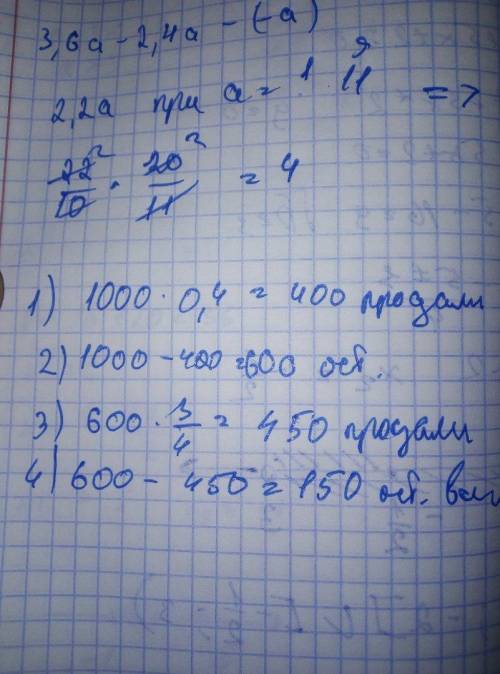 3,6а - 2,4а - (-а)
2,2а при а = 1 9/11 =>
22²/10 · 20²/11 = 4
1) 1000 · 0,4 = 400 продали
2) 1000 - 400 = 600 ост.
3) 600 · 3/4 = 450 продали
4) 600 - 450 = 150 ост.